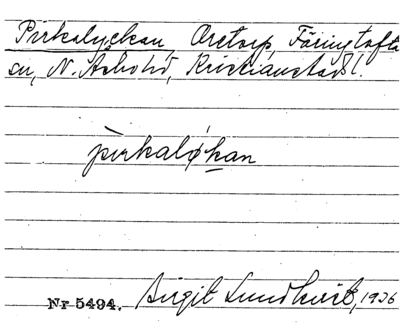 Pirkalyckan, Oretorp, Färingtofta
sn, N. Åsbo hd, Kristianstads l.
pìrkaløkan
Nr 5494. Birgit Lundkvist, 1926